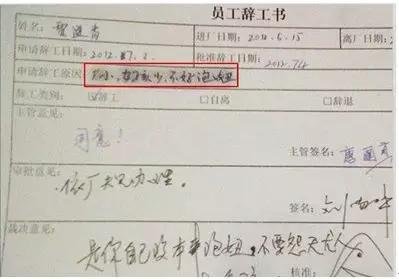 员工辞工书
姓名： 进厂日期：2011.6.15 离厂日期：2
申请辞工日期：2012.7.2. 批准辞工日期：2012.7.4
申请辞工原因 厂小，女孩少，不好泡妞
辞工类别： 辞工 □自离 □辞退
主管意见：
同意！
主管签名：
审批意见：
依厂规办理。
签名：
裁决意见：
是你自己没本事泡妞，不要怨天尤人